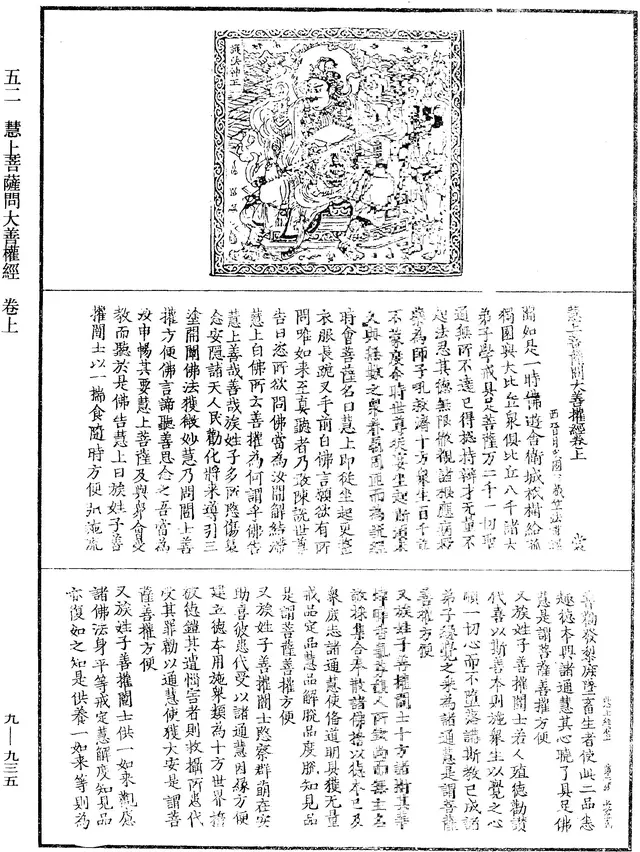 五二 慧上菩薩問大善權經 卷上
九—九三五
護法神王
慧上菩薩問大善權經卷上
西晉月氏國三藏竺法護譯
聞如是一時佛遊舍衛城祇樹給孤
獨園與大比丘眾俱比丘八千諸大
弟子學戒具足菩薩万二千一切聖
通無所不達已得揔持辯才無量不
起法忍其德無限觀諸根應病
藥為師子吼救濟十方眾生百千
不蒙度介時世尊從宴坐起
又與無數之眾眷屬圍遶而為說經
時會菩薩名曰慧上即從坐起更整
衣服長跪叉手前白佛言願欲有所
問唯如來至真聽者乃敢陳說世尊
告曰恣所欲問佛當為汝開解結滯
慧上白佛所言善權為何謂乎佛告
慧上善哉善哉族姓子多所愍傷
念安隱諸天人民勸化將來導引三
塗開闡佛法獲微妙慧乃問闓士善
權方便佛言諦聽善思念之吾當為
汝申暢其要慧上菩薩及與眾會受
教而聽於是佛告慧上曰族姓子善
權闓士以一揣食隨時方便弘施流
普猶發梨族墮畜生者使此二品志
趣德本與諸通慧其心曉了具足佛
慧是謂菩薩善權方便
又族姓子善權闓士若人殖德勸讚
代喜以斯善本則施眾生以覺之心
頒一切心而不墮落講斯教已成諸
弟子緣覺之乘為諸通慧是謂菩薩
善權方便
又族姓子善權闓士十方諸樹其華
人所
採集合奉散諸佛持以德本已及
眾庶志諸通慧使脩道明具獲無量
戒品定品慧品解脫品度脫知見品
是謂菩薩善權方便
又族姓子善權闓士臨察群萌在安
助喜彼患代受以諸通慧因緣方便
建立德本用施眾類為十方世界擐
被德鎧其遭惱害者則救攝所患代
受其罪勸以通慧使獲大安是謂菩
薩善權方便
又族姓子善權闓士供一如來觀應
諸佛法身平等戒定慧解度知見品
亦復如之知是供養一如來等則為